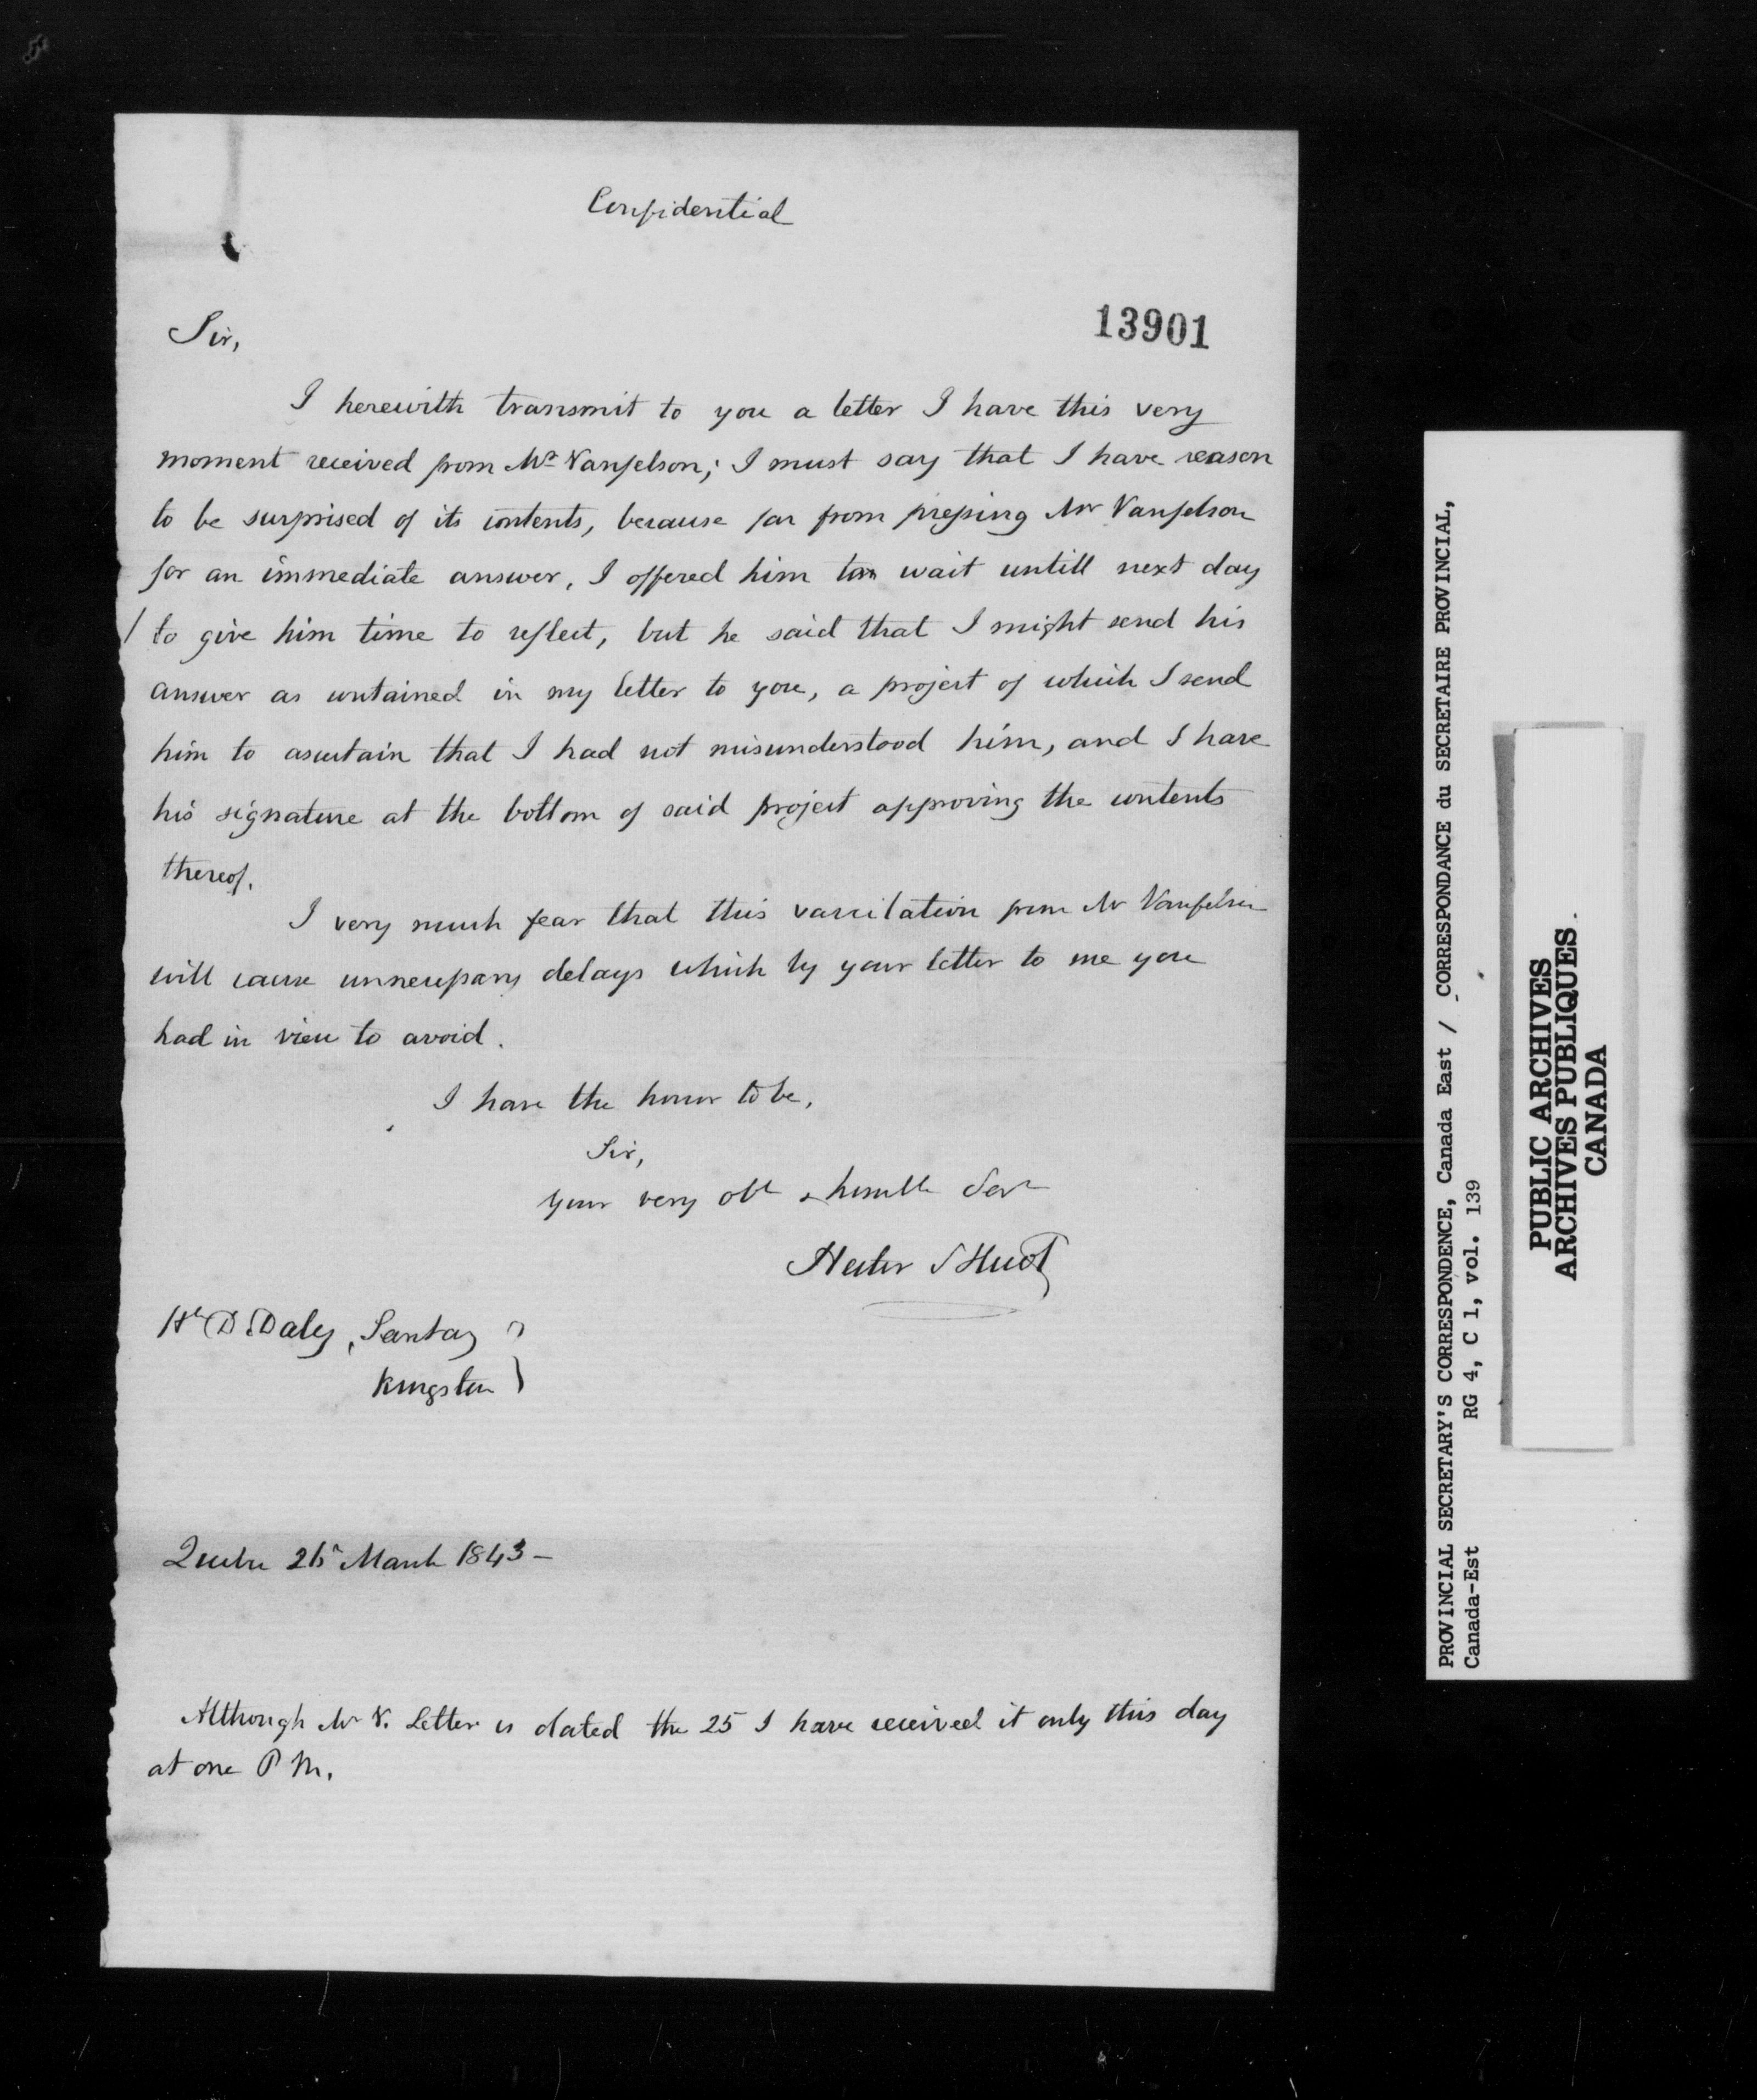 Confidential
13901
Sir,
I herewith transmit to you a letter I have this very
moment received from Mr Vanfelson; I must say that I have reason
to be surprised of its contents, because far from pressing Mr Vanfelson
for an immediate answer, I offered him to wait untill next day
/ to give him time to reflect, but he said that I might send his
answer as contained in my letter to you, a project of which I send
him to ascertain that I had not misunderstood him, and I have
his signature at the bottom of said project approving the contents
thereof.
I very much fear that this vaccilation from Mr Vanfelson
will cause unnecessary delays which by your letter to me you
had in view to avoid.
I have the honor to be,
Sir,
Your very obt & humble Servt
Hector S Huot
Hl D. Daly, 
Kingston
Quebec March 1843 -
Although Mr V. Letter is dated the 25 I have received it only this day
at one P M.
PROVINCIAL SECRETARY'S CORRESPONDENCE, Canada East / CORRESPONDANCE du SECRETAIRE PROVINCIAL,
Canada-Est RG 4, C 1, vol. 139
PUBLIC ARCHIVES
ARCHIVES PUBLIQUES
CANADA